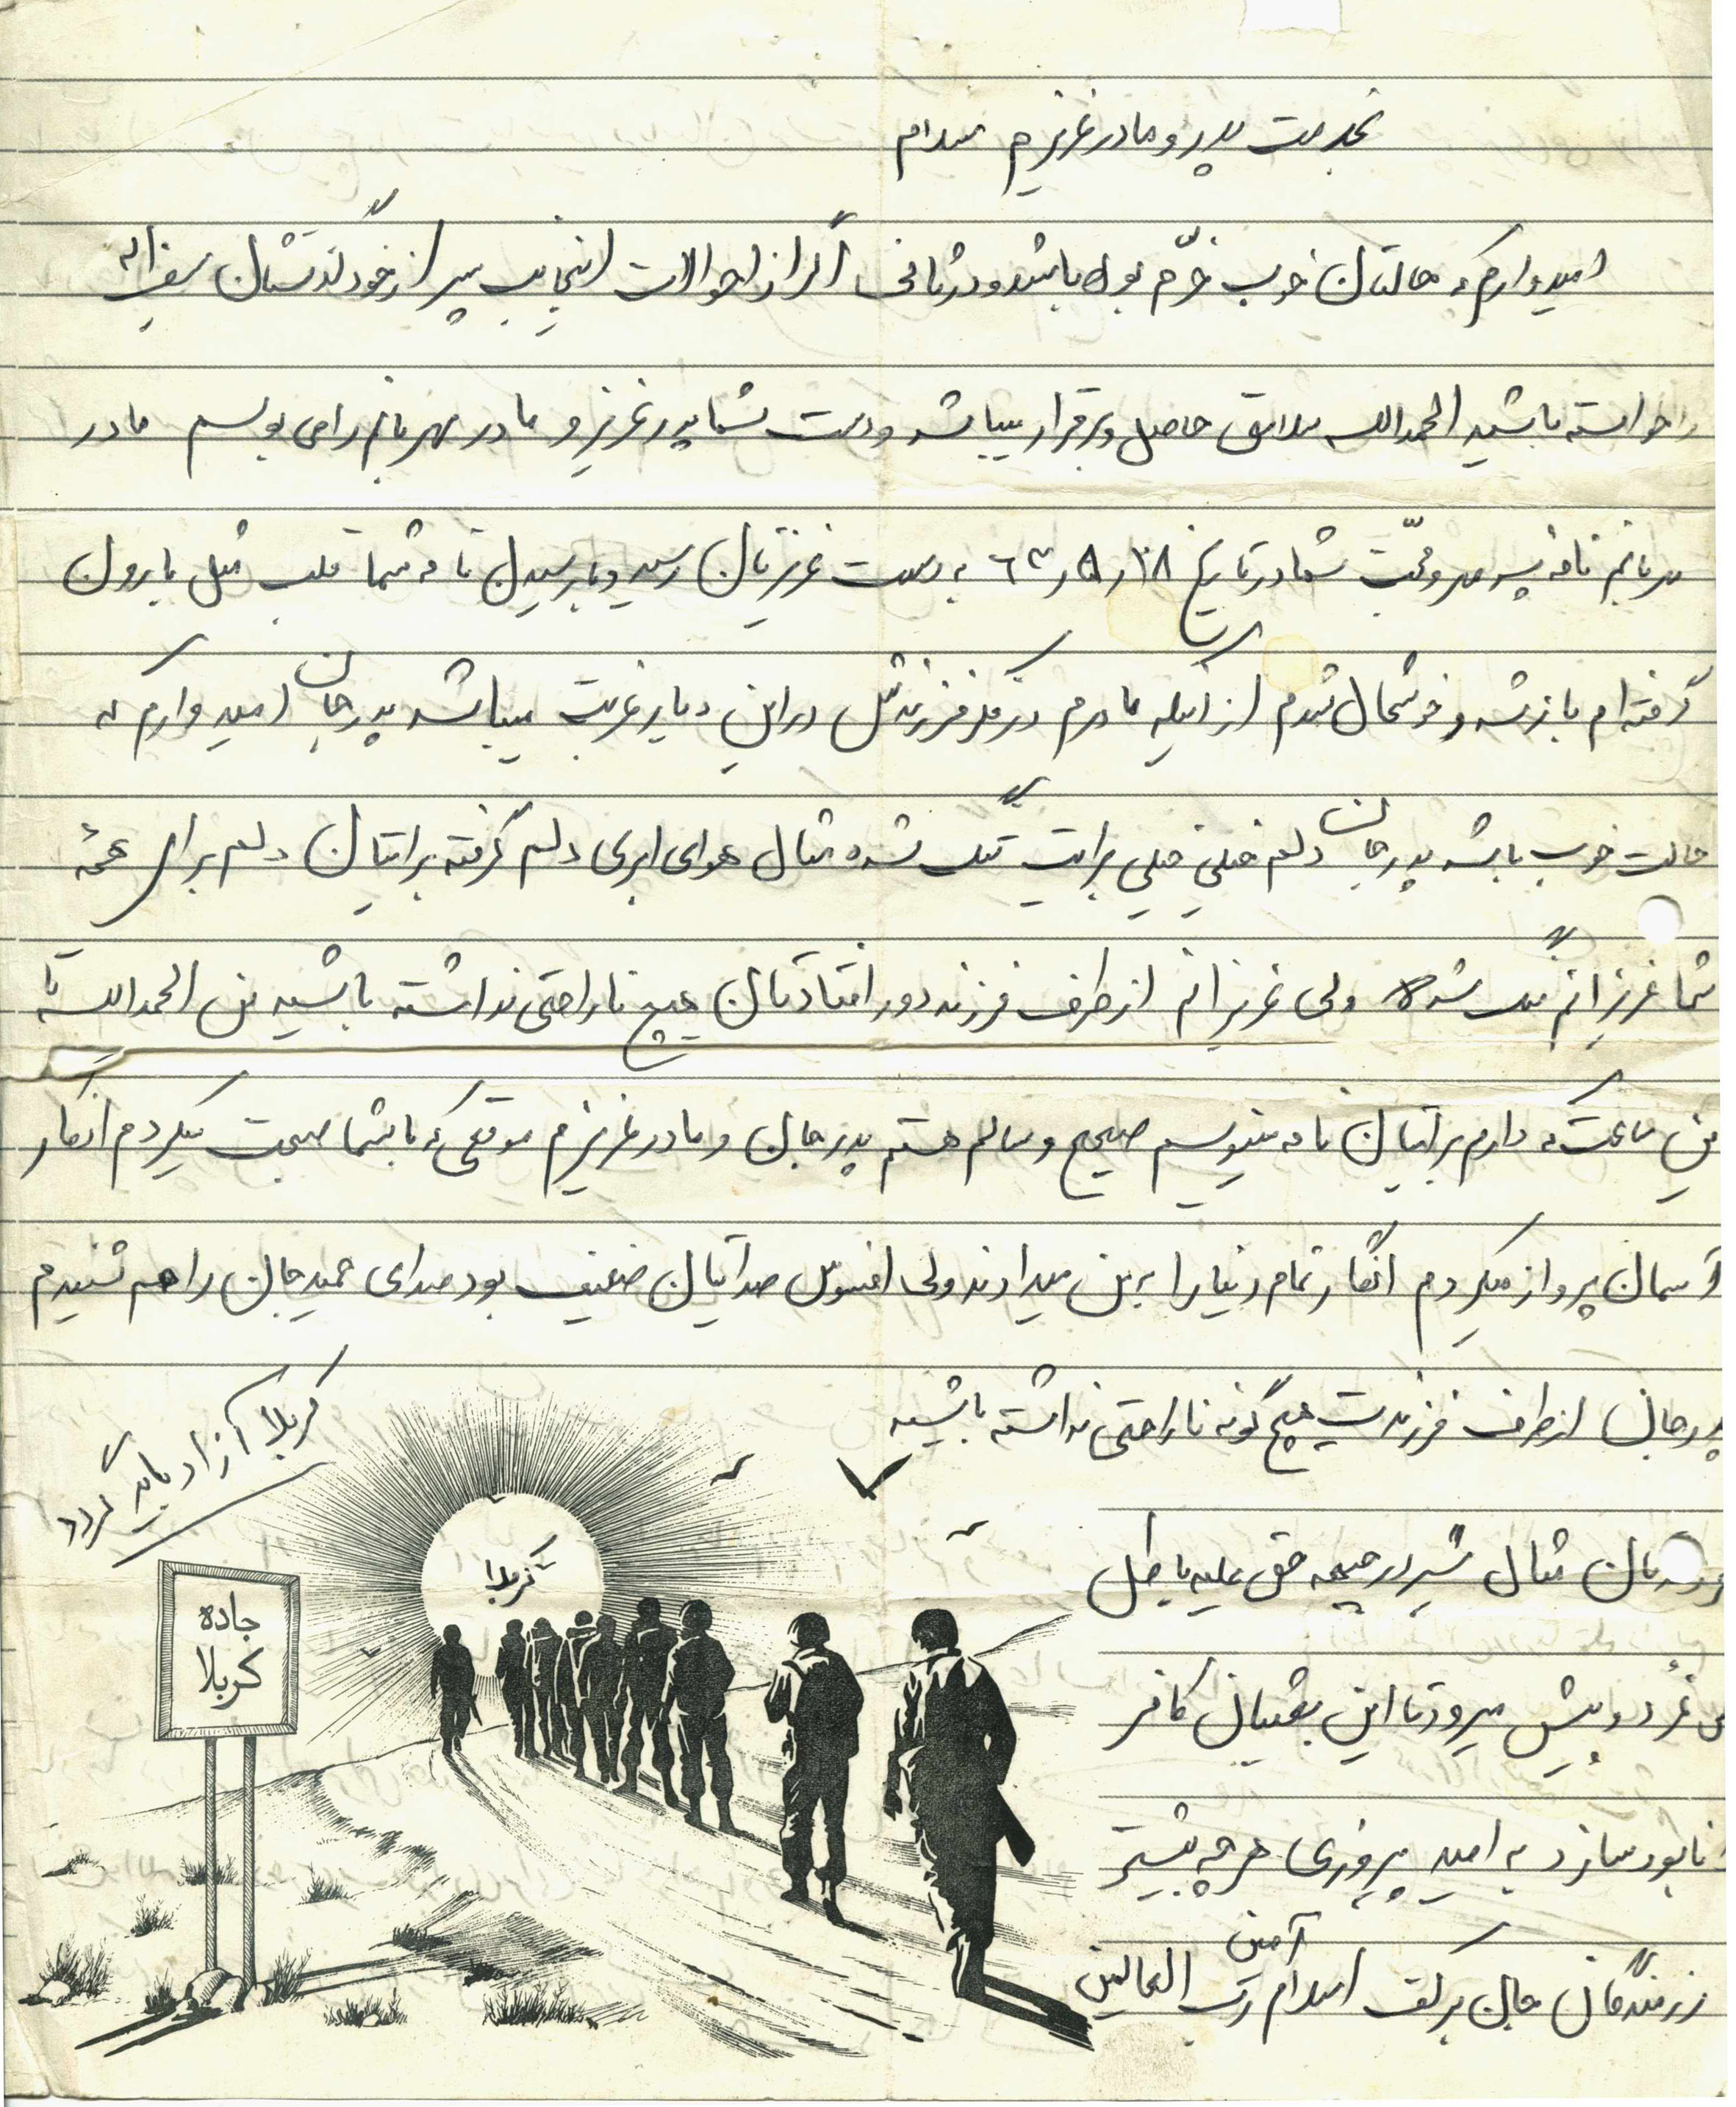 بخدمت پدر و مادر عزیزم سلام
امیدوارم که حالتان خوب خرّم بوده باشد و در ثانی اگر از احوالات اینجانب پسر از خود گذشتتان
را خواسته باشید الحمدالله سلامتی حاصل و برقرار میباشد و دست شما پدر عزیز و مادر مهربانم را می بوسم مادر
مهربانم نامه پر مهر و محبّت شما در تاریخ ۶۳/۵/۲۸ به دست عزیزتان رسید و با رسیدن نامه شما قلب مثل بارون
گرفته ام باز شد و خوشحال شدم از اینکه مادرم در فکر فرزندش در این دیار غربت میباشد پدر جان امیدوارم که
حالت خوب باشد پدر جان دلم خیلی خیلی برایت تنگ شده مثال هوای ابری دلم گرفته برایتان دلم برای همهٔ
شما عزیزانم تنگ شده ولی عزیزانم از طرف فرزند دور افتادتان هیچ ناراحتی نداشته باشید من الحمدالله تا
این ساعت که دارم برایتان نامه مینویسم صحیح و سالم هستم پدر جان و مادر عزیزم موقعی که با شما صحبت میکردم انگار
آسمان پرواز میکردم انگار تمام دنیا را به من میدادند ولی افسوس صدایتان ضعیف بود صدای حمید جان را هم شنیدم
پدر جان از طرف فرزندت هیچ گونه ناراحتی نداشته باشید
مثال شیر در جبهه حق علیه باطل
می غرّد و پیش میرود تا این بعثیان کافر
نابود سازد به امید پیروزی هر چه بیشتر
رزمندگان جان بر کف اسلام آمین رب العالمین
کربلا آزاد باید گردد
کربلا
جاده
کربلا